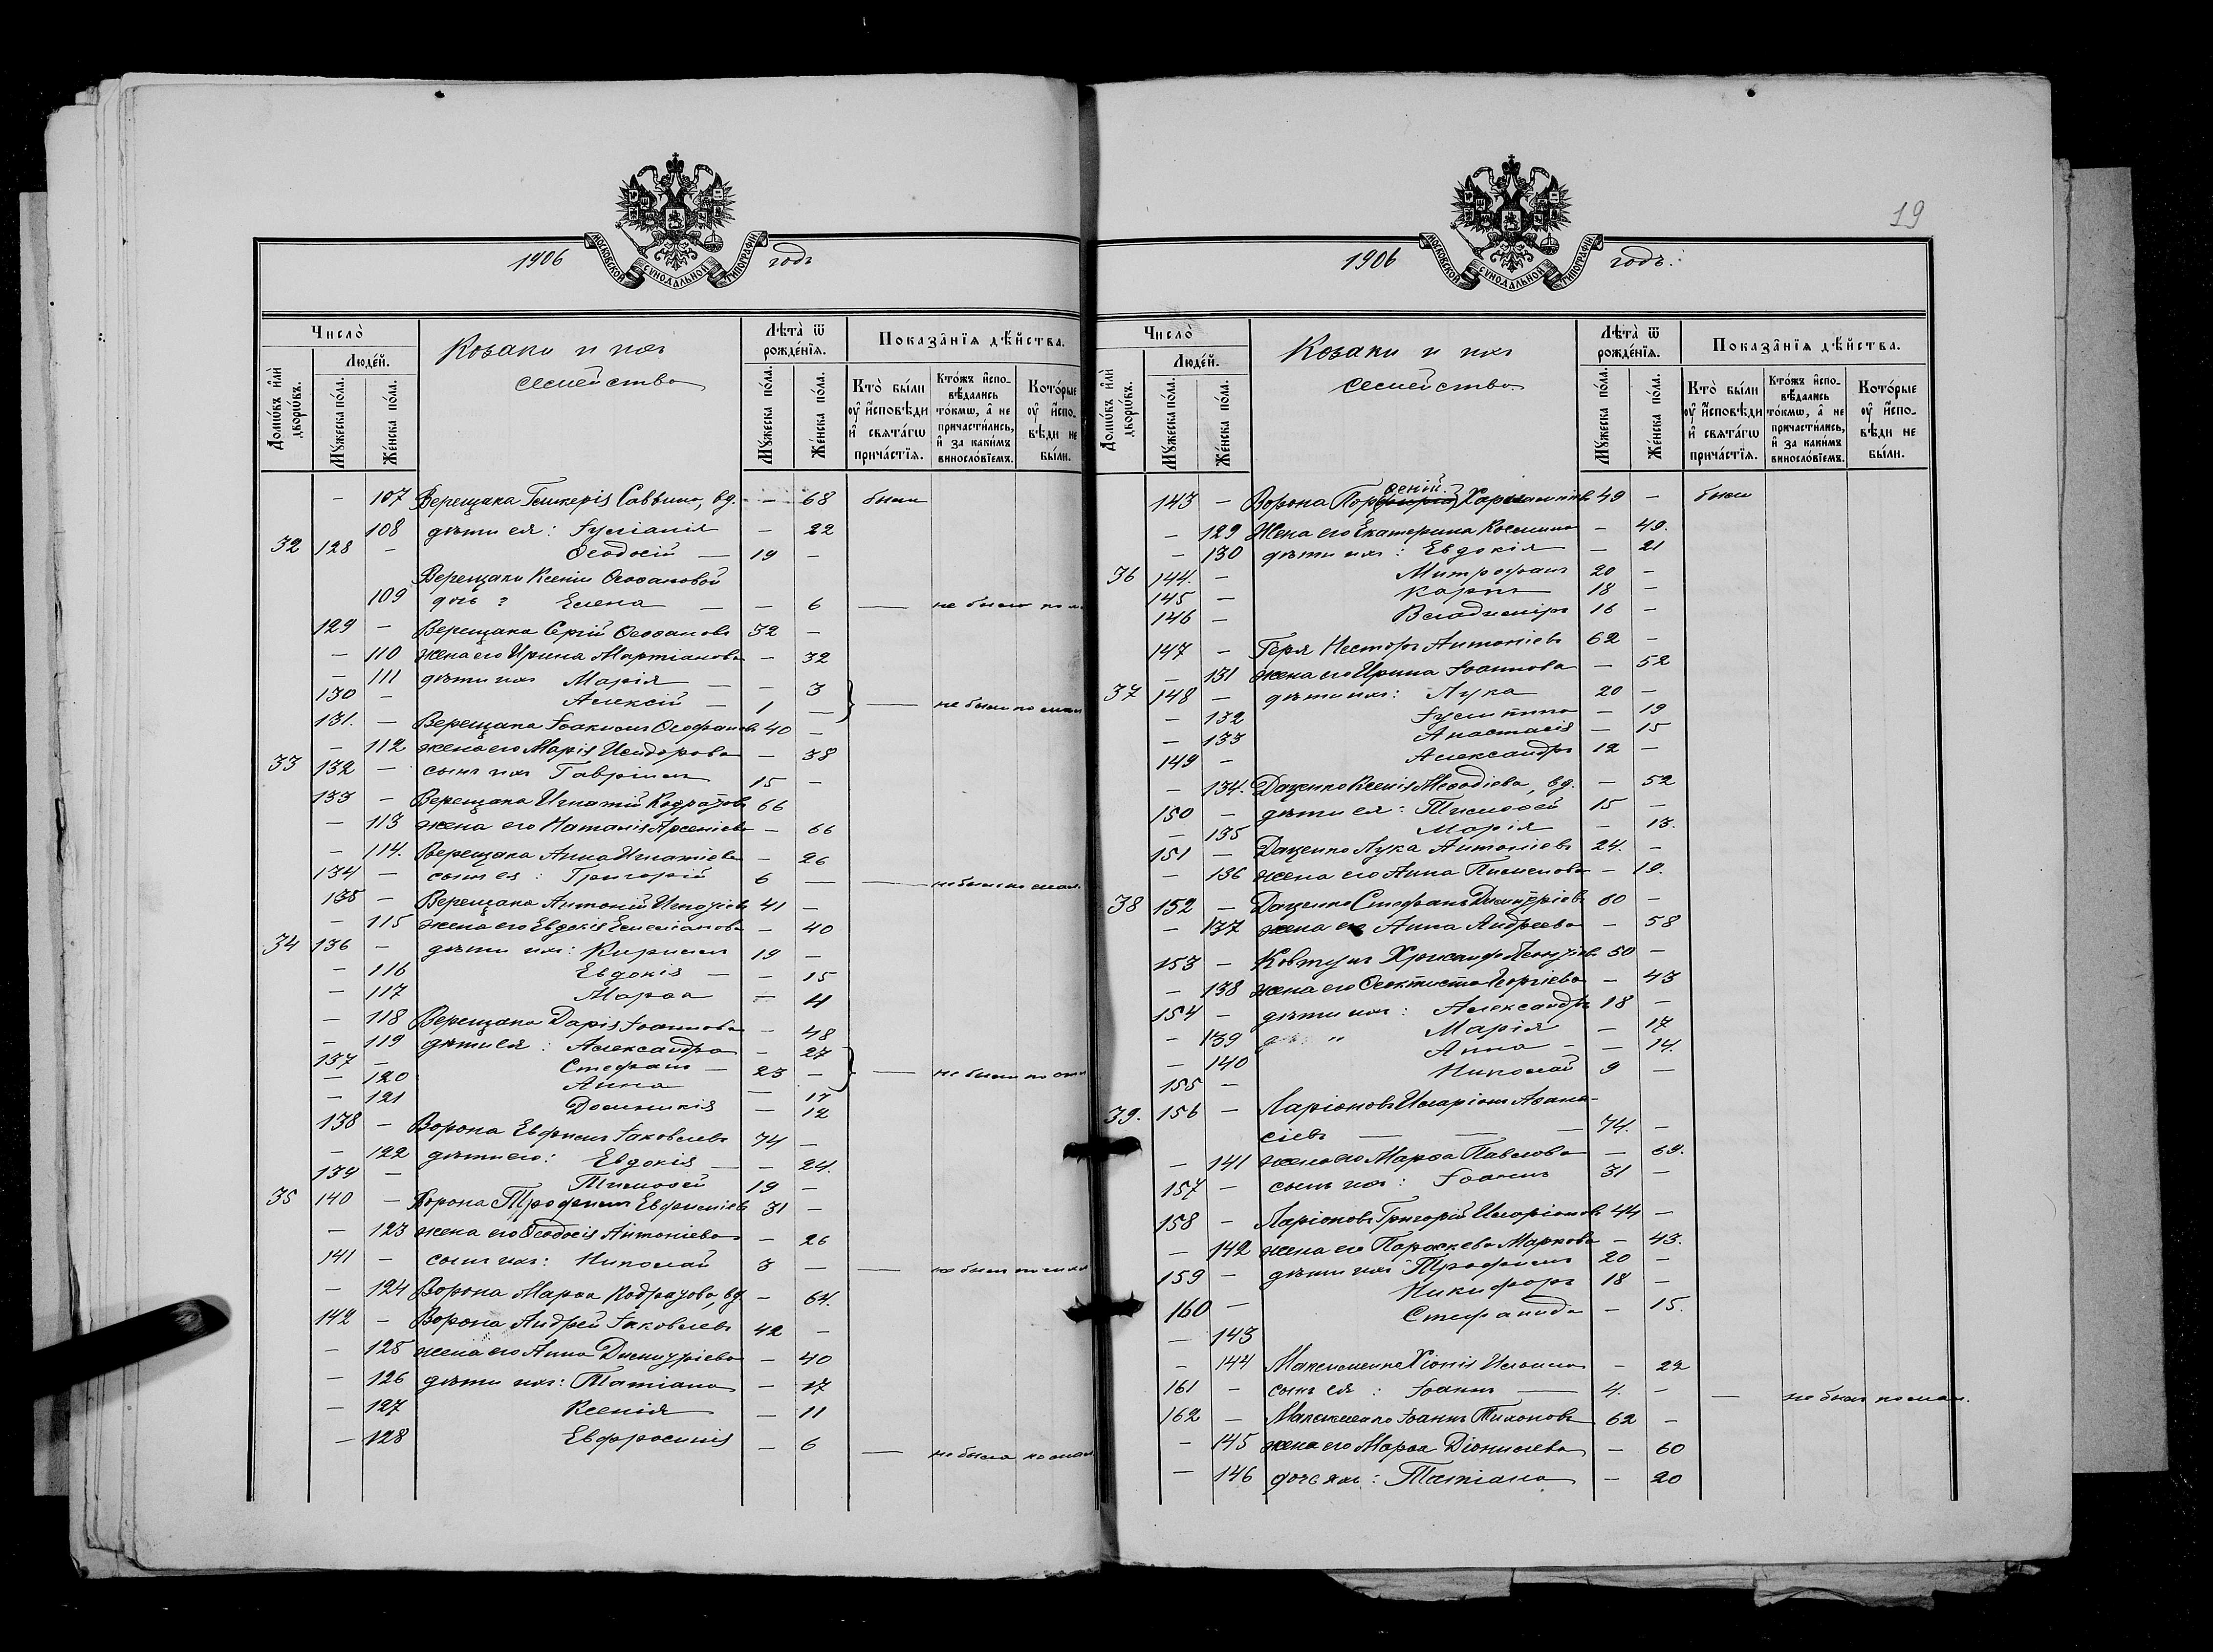 МОСКОВСКОЙ СѴНОДАЛЬНОЙ ТИПОГРАФІИ
1906 годъ
Число̀
Людей.
Домѡ́въ и҆лѝ дворѡ́въ.
Мꙋ́жеска по́ла.
Же́нска по́ла.
Козаки и ихъ
семейства
Лѣта̀ ѿ рожде́нїѧ.
Мꙋ́жеска по́ла.
Же́нска по́ла.
Показа̑нїѧ дѣ́йства.
Кто̀ бы́ли ᲂу҆ и҆сповѣди и҆ свѧта́гѡ прича́стїѧ.
Кто́жъ и҆спо-вѣдались то́кмѡ, а҆ не причасти́лись, и҆ за каки́мъ винослов́їемъ.
Кото́рые ᲂу҆ и҆спо-вѣди не бы́ли.
— 107 Верещака Гликерія Саввина, вд. — 68 были
108 дѣти ея: Іуліанія — 22
32 128 — Ѳеодосій — 19 —
Верещаки Ксеніи Ѳеофановой
109 дочь: Елена — — 6 — не была по м
129 — Верещака Сергій Ѳеофановъ 32 —
— 110 жена его Ирина Мартіанова — 32
— 111 дѣти ихъ Марія — — 3
130 — Алексій — 1 — не были по мал
131. — Верещака Іоакимъ Ѳеофановъ 40 —
— 112 жена его Марія Исидорова — 38
33 132 — сынъ ихъ Гавріилъ 15 —
133 — Верещака Игнатій Кодратовъ 66
— 113 жена его Наталія Арсеніева — 66
— 114. Верещака Анна Игнатіева — 26
134 — сынъ ея: Григорій 6 — — не былъ по мал.
135 — Верещака Антоній Игнатіевъ 41 —
— 115 жена его Евдокія Емеліанова — 40
34 136 — дѣти ихъ: Кириллъ 19 —
— 116 Евдокія — — 15
— 117 Марѳа — 4
— 118 Верещака Дарія Іоаннова — 48
— 119 дѣти ея: Александра — 27
137 — Стефанъ — 23 — — не были по
— 120 Анна — 17
— 121 Домникія — 12
138 — Ворона Евфимъ Іаковлевъ 74 —
— 122 дѣти его: Евдокія — — 24.
139 — Тимоѳей 19 —
35 140 — Ворона Трофимъ Евфиміевъ 31 —
— 123 жена его Ѳеодосія Антоніева — 26
141 — сынъ ихъ: Николай 3 — — не былъ по мал
— 124 Ворона Марѳа Кодратова, вд — 64.
142 — Ворона Андрей Іаковлевъ 42 —
— 125 жена его Анна Димитріева — 40
— 126 дѣти ихъ: Татіана — 17
— 127 Ксенія — 11
— 128 Евфросинія — 6 — не была по мал
19
МОСКОВСКОЙ СѴНОДАЛЬНОЙ ТИПОГРАФІИ
1906 годъ.
Число̀
Людей.
Домѡ́въ и҆лѝ дворѡ́въ.
Мꙋ́жеска по́ла.
Же́нска по́ла.
Козаки и ихъ
семейства
Лѣта̀ ѿ рожде́нїѧ.
Мꙋ́жеска по́ла.
Же́нска по́ла.
Показа̑нїѧ дѣ́йства.
Кто̀ бы́ли ᲂу҆ и҆сповѣди и҆ свѧта́гѡ прича́стїѧ.
Кто́жъ и҆спо-вѣдались то́кмѡ, а҆ не причасти́лись, и҆ за каки́мъ винослов́їемъ.
Кото́рые ᲂу҆ и҆спо-вѣди не бы́ли.
143 — Ворона Порфирій Харлампіевъ 49 — были
— 129 Жена его Екатерина Космина — 49.
— 130 дѣти ихъ: Евдокія — 21
36 144. — Митрофанъ 20 —
145 — Карпъ 18 —
146 — Владиміръ 16 —
147 — Геря Несторъ Антоніевъ 62 —
— 131 жена его Ирина Іоаннова — 52
37 148 — дѣти ихъ: Лука 20 —
— 132 Іустина — 19
— 133 Анастасія — 15
149 — Александръ 12 —
— 134. Даценко Ксенія Меѳодіева, вд. — 52
150 — дѣти ея: Тимоѳей 15 —
— 135 Марія — 13.
151 — Даценко Лука Антоніевъ 24. —
— 136 жена его Анна Пименова — 19.
38 152 — Даценко Стефанъ Димитріевъ 60 —
— 137 жена его Анна Андреева — 58
153 — Ковтунъ Хрисанфъ Леонтіевъ 50 —
— 138 жена его Ѳеоктиста Георгіева — 43
154 — дѣти ихъ: Александръ 18 —
— 139 " Марія — 17
— 140 Анна — — 14.
155 — Николай 9 —
39. 156 — Ларіоновъ Иларіонъ Аѳана-
сіевъ — — — 74. —
— 141 жена его Марѳа Павлова — 69.
157 — сынъ ихъ: Іоаннъ 31 —
158 — Ларіоновъ Григорій Иларіоновъ 44 —
— 142 жена его Параскева Маркова — 43.
159 — дѣти ихъ Трофимъ 20 —
160 — Никифоръ 18 —
— 143 Стефанида — 15.
— 144 Максименко Хіонія Ильина — 22
161 — сынъ ея: Іоаннъ — 4. — — не былъ по мал.
162 — Максименко Іоаннъ Тихоновъ 62 —
— 145 жена его Марѳа Діонисіева — 60
— 146 дочь ихъ: Татіана — 20